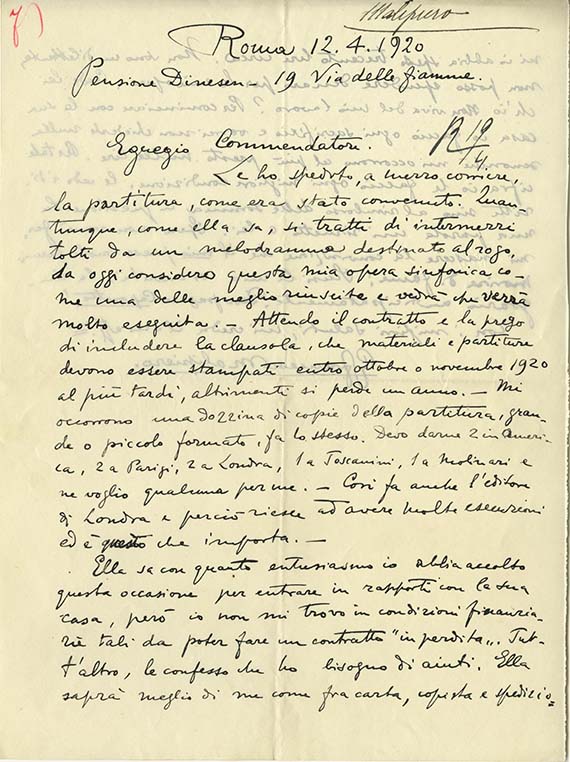 Malipiero
Roma 12.4.1920
Pensione Dinesen - 19 Via delle fiamme.
R 19/4
Egregio Commendatore.
Le ho spedito, a mezzo corriere,
la partitura, come era stato convenuto. Quan-
tunque, come ella sa, si tratti di intermezzi
tolti da un melodramma destinato al rogo,
da oggi considero questa mia opera sinfonica co-
me una delle meglio riuscite e vedrà che verrà
molto eseguita. — Attendo il contratto e la prego
di includere la clausola, che materiali e partiture
devono essere stampati entro ottobre o novembre 1920
al più tardi, altrimenti si perde un anno. — Mi
occorrono una dozzina di copie della partitura, gran-
de o piccolo formato, fa lo stesso. Devo darne 2 in Ameri-
ca, 2 a Parigi, 2 a Londra, 1 a Toscanini, 1 a Molinari e
ne voglio qualcuna per me. — Così fa anche l'editore
di Londra e perciò riesce ad avere molte esecuzioni
ed è questo che importa. —
Ella sa con quanto entusiasmo io abbia accolto
questa occasione per entrare in rapporti con la sua
casa, però io non mi trovo in condizioni finanzia-
rie tali da poter fare un contratto "in perdita". Tut-
t'altro, le confesso che ho bisogno di aiuti. Ella
saprà meglio di me come fra carta, copista e spedizio=